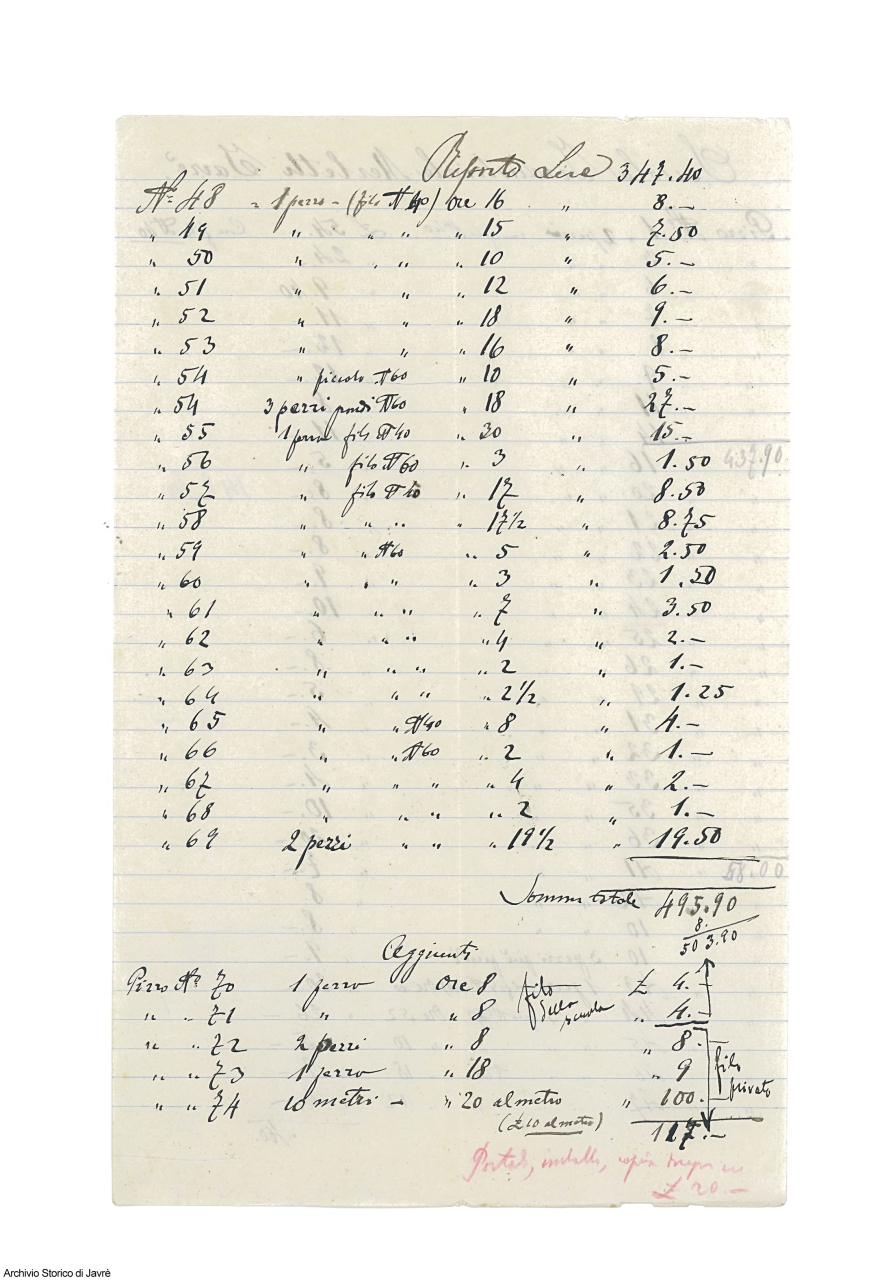 Riporto Lire 347.40
No 48 = 1 pezzo - (filo No 40) ore 16 " 8.-
" 49 " " " " 15 " 7.50
" 50 " " " " 10 " 5.-
" 51 " " " 12 " 6.-
" 52 " " " 18 " 9.-
" 53 " " " 16 " 8.-
" 54 " piccolo No 60 " 10 " 5.-
" 54 3 pezzi No 60 " 18 " 27.-
" 55 1 pezzo filo No 40 " 30 " 15.-
" 56 " filo No 60 " 3 " 1.50 437.90
" 57 " filo No 40 " 17 " 8.50
" 58 " " " " 17 1/2 " 8.75
" 59 " " No 60 " 5 " 2.50
" 60 " " " " 3 " 1.50
" 61 " " " " 7 " 3.50
" 62 " " " 4 " 2.-
" 63 " " " " 2 " 1.-
" 64 " " " " 2 1/2 " 1.25
" 65 " " No 40 " 8 " 4.-
" 66 " " No 60 " 2 " 1.-
" 67 " " " " 4 " 2.-
" 68 " " " " 2 " 1.-
" 69 2 pezzi " " " 19 1/2 " 19.50
58.00
Somma totale 495.90
8.
503.90
Aggiunti
Pizzo No 70 1 pezzo Ore 8 filo £ 4.-
" " 71 " " 8 della scuola " 4.-
" " 72 2 pezzi " 8 " 8.-
" " 73 1 pezzo " 18 " 9 filo
" " 74 10 metri - " 20 al metro " 100.- privato
(£ 10 al metro) 117.-
£ 20.-
Archivio Storico di Javrè